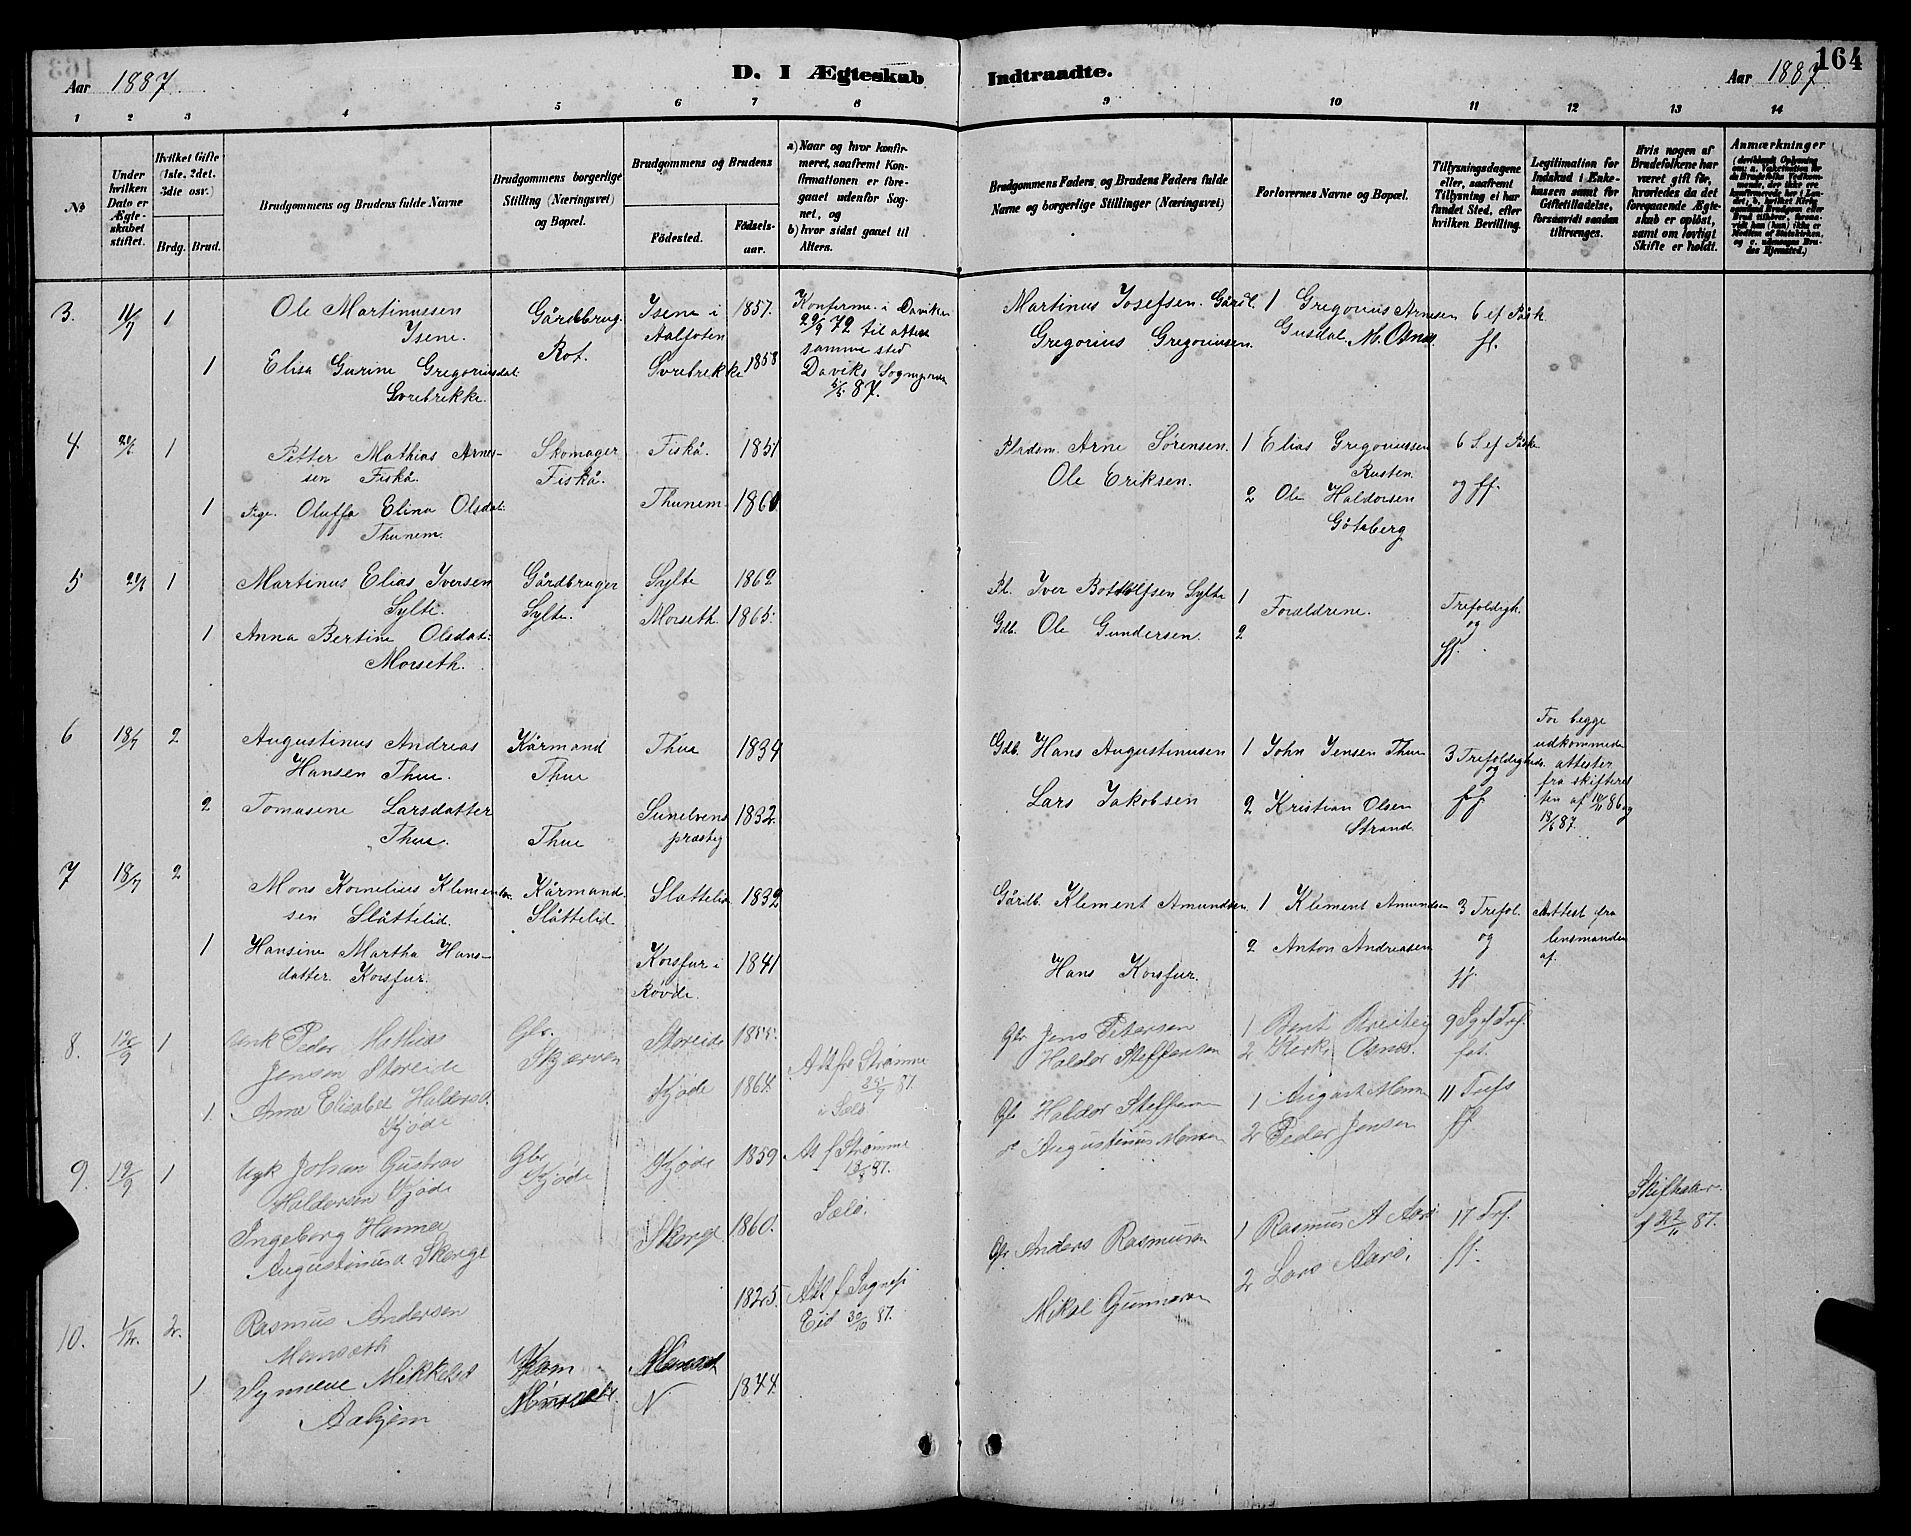 163
164
Aar 1887
D. I Ægteskab Indtraadte.
Aar 1887
1 2 3 4 5 6 7 8 9 10 11 12 13 14
№
Under hvilken Dato er Ægteskabet stiftet.
Hvilket Gifte (1ste, 2det, 3die osv.)
Brdg. Brud.
Brudgommens og Brudens fulde Navne
Brudgommens borgerlige Stilling (Næringsvei) og Bopæl.
Brudgommens og Brudens
Fødested.
Fødselsaar.
a) Naar og hvor konfirmeret, saafremt Konfirmationen er foregaaet udenfor Sognet, og
b) hvor sidst gaaet til Alters.
Brudgommens Faders og Brudens Faders fulde Navne og borgerlige Stillinger (Næringsvei)
Forlovernes Navne og Bopæl.
Tillysningsdagene eller, saafremt Tillysning ei har fundet Sted, efter hvilken Bevilling.
Legitimation for Indskud i Enkekassen samt for Giftetilladelse, forsaavidt saadan tiltrænges.
Hvis nogen af Brudefolkene har været gift før, hvorledes da det foregaaende Ægteskab er opløst, samt om lovligt Skifte er holdt.
Anmærkninger
3. 11/7 1
Ole Martinussen
Isene.
Gårdbrug.
Rot.
Isene i
Aalfoten
1857.
Konferme. i Daviken
29/9 72 til alters
samme sted
Martinus Josefsen. Gårdb.
1 Gregorius Arnesen
Gusdal. M. Osnes.
6 ef Påsk.
ff.
1 Elisa Gurine Gregoriusdat.
Svrebrekke.
Svrebrekke 1858
Daviks Sogneprest
87.
Gregorius Gregoriussen.
4. 1
Petter Mathias Arne-
sen Fiskå.
Skomager
Fiskå.
Fiskå. 1851
Plrdsm. Arne Sørensen.
1 Elias Gregoriussen
Rusten.
6 S. ef Påsk
og ff.
1 Pige. Oluffa Elina Olsdat.
Thunem.
Thunem. 1860
Ole Eriksen.
2 Ole Haldorsen
Götaberg
5 1
Martinus Elias Iversen
Sylte.
Gårdbruger
Sylte.
Sylte 1862
Pl. Iver Bottolfsen Sylte
1 Forældrene.
2
Trefoldigh.
og
ff.
1 Anna Bertine Olsdat.
Morseth.
Morseth. 1865.
Gdb. Ole Gundersen.
6 18/7 2
Augustinus Andreas
Hansen Thue.
Kårmand
Thue
Thue 1834
Gdb. Hans Augustinusen
1 John Jensen Thue
3 Trefoldighds.
og
ff
For begge
udkommede
attester
fra skifteret
ten af 86 og
87.
2 Tomasine Larsdatter
Thue.
Thue
Sunelvens
præstej
1832.
Lars Jakobsen
2 Kristian Olsen
Strand.
7 18/7 2
Mons Kornelius Klement-
sen Slåttelid.
Kårmand.
Slåttelid.
Slattelid 1832
Gårdb. Klement Amundsen.
1 Klement Amundsen
3 Trefol.
og
ff.
Attest fra
lensmanden
af.
1 Hansine Martha Hans-
datter Korsfur.
Korsfur i
Røvde.
1841
Hans Korsfur.
2 Anton Andreasen
8. 1
Unk Peder Mathias
Jensen Storeide
Gbr.
Skjærven
Storeide 1855.
Gbr Jens Petersen
Haldor Steffensen
1 Bent Breiteig
2 Kirks. Osnes.
9 S. ef Tref.
1 Anne Elisabet Haldorsd.
Kjøde
Kjøde 1864.
Att fra Strømme
87.
i Sels
9. 19/9 1
Ugk Johan Gustav
Haldorsen Kjøde
Gbr
Kjøde
Kjøde 1859
At f Strømme
87.
Selø.
Gbr Haldor Steffensen
Augustinus Monsen
1 August Monsen
2 Peder Jensen
11 Trefs
ff.
Ingeborg Hanna
Augustinusd Skorge
Skorge 1860.
10. 1/12. 2.
Rasmus Andersen
Monsæth
1825.
Att f Sognep
Eid 30/10 87.
Gbr Anders Rasmusen
1 Rasmus A Aarø
2 Lars Aarø.
17 Tref.
ff.
Skifteatter.
f 22/11 87.
1 Synneve Mikkelsd
Aahjem
1844.
Mikal Gunnersen